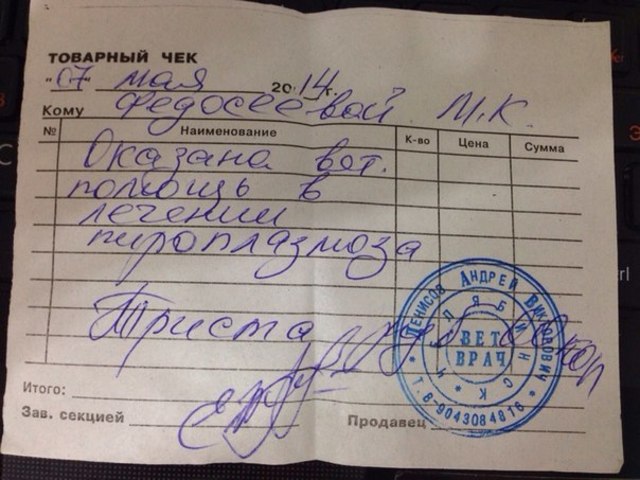 ТОВАРНЫЙ ЧЕК
"07" мая 2014 г.
Кому Федосеевой М.К.
№ Наименование К-во Цена Сумма
Оказана вет.
помощь в
лечении
пироплазмоза
Триста руб 00 коп
Итого:
Зав. секцией Продавец
Денисов Андрей Викторович
* Т. 8-9043084816 *
ЧЕЛЯБИНСК
ВЕТ
ВРАЧ